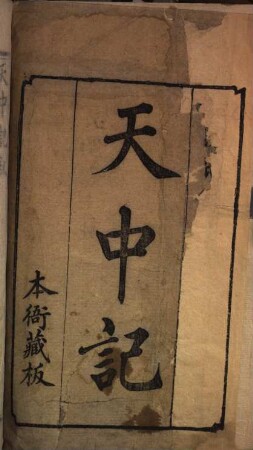 天中記
本衙藏板